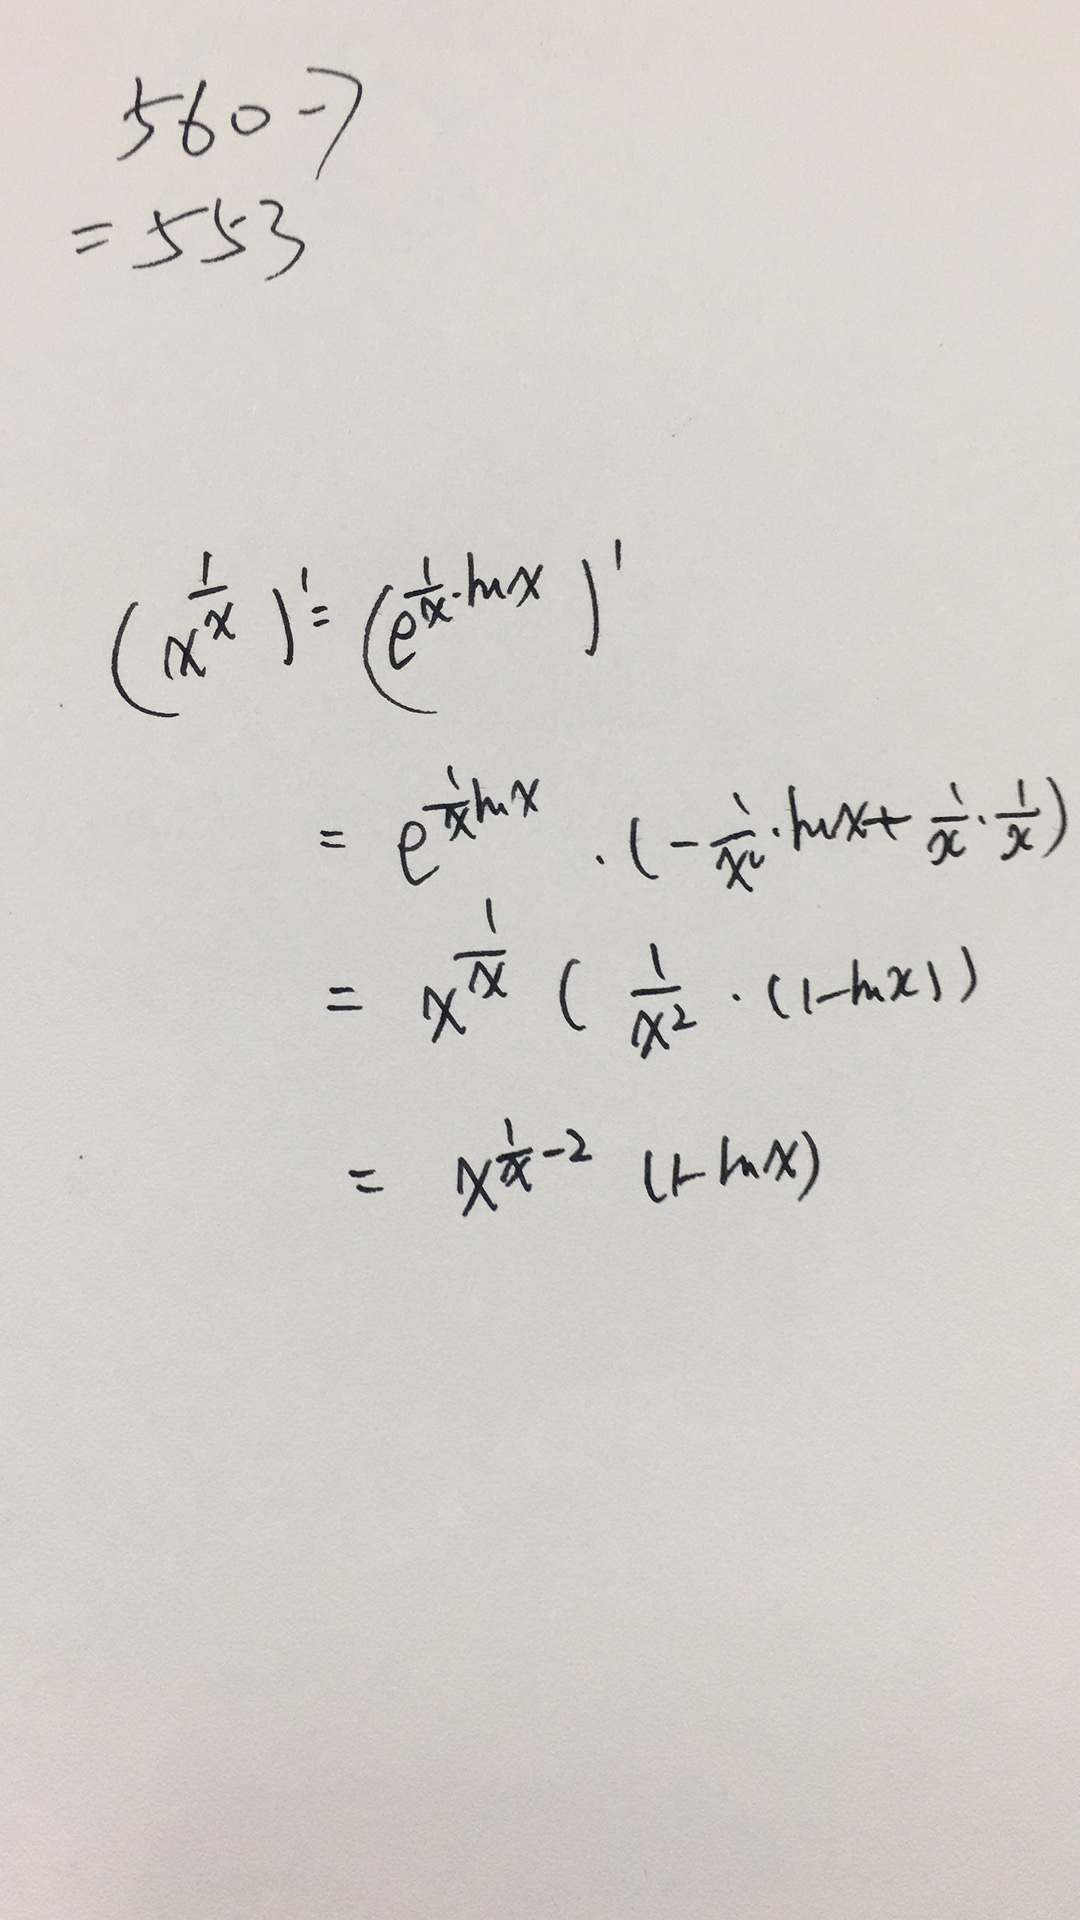 560-7
=553
(x^{\frac{1}{x}})'=(e^{\frac{1}{x}·lnx})'
= e^{\frac{1}{x}lnx}·(-\frac{1}{x²}·lnx+\frac{1}{x}·\frac{1}{x})
= x^{\frac{1}{x}}(\frac{1}{x²}·(1-lnx))
= x^{\frac{1}{x}-2}(1-lnx)